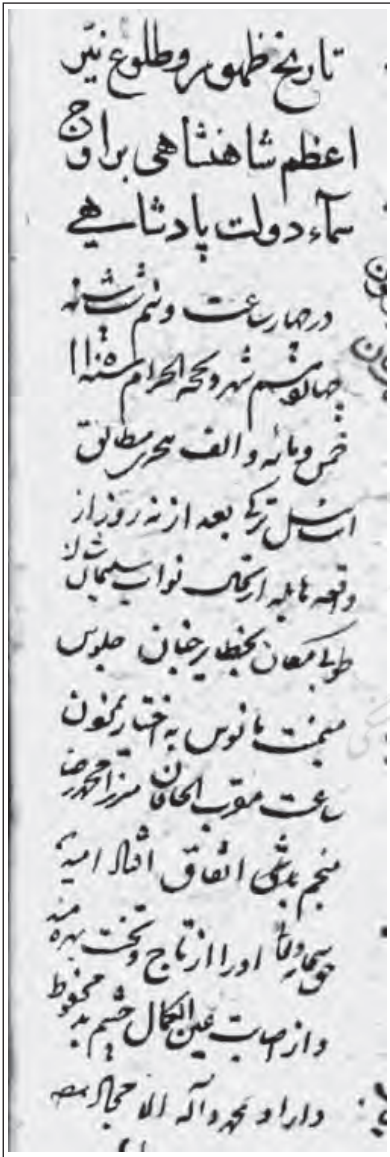 تاریخ ظهور و طلوع نیّر
اعظم شاهنشاهی بر اوج
سمآء دولت پادشاهی
در چهار ساعت و نیم شب شنبه
چهاردهم شهر ذیحجة الحرام سنه ۱۱۰۵
خمس و مائه و الف هجری مطابق
ایت ئیل ترکی بعد از نه روز از
واقعه هایله ارتحال نواب سلیمان شان
طوبی مکان بخطایر جنان جلوس
میمنت مانوس به اختیار میمون
ساعت مقرب الخاقان میرزا محمد رضا
منجم باشی اتفاق افتاد امید که
حق سبحانه و تعالی او را از تاج و تخت بهره‌مند
و از اصابت عین الکمال چشم بد محفوظ
داراد بمحمد و آله الامجاد